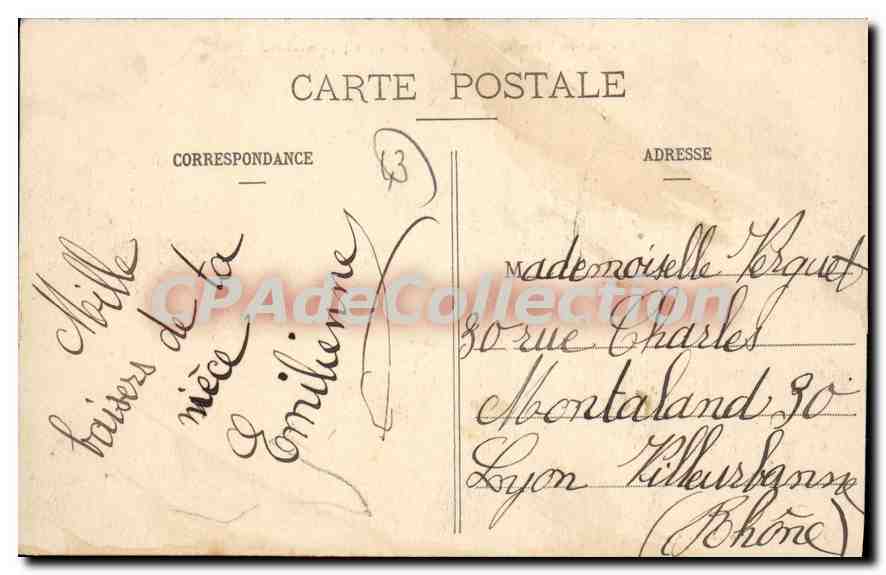 CARTE POSTALE
CORRESPONDANCE
43
Mille
baisers de ta
nièce
Emilienne
ADRESSE
Mademoiselle Verguet
30 rue Charles
Montaland 30
Lyon Villeurbanne
(Rhône)
CPAdeCollection.com